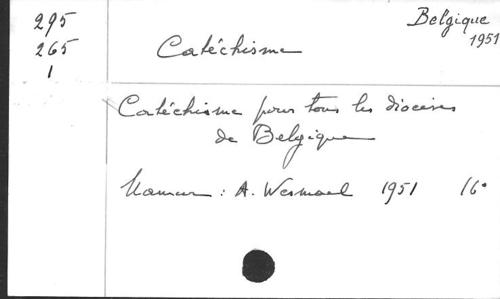 295
265
1
Belgique
1951
Catéchisme
Catéchisme pour tous les diocèses
de Belgique
Namur : A. Wesmael 1951 16°